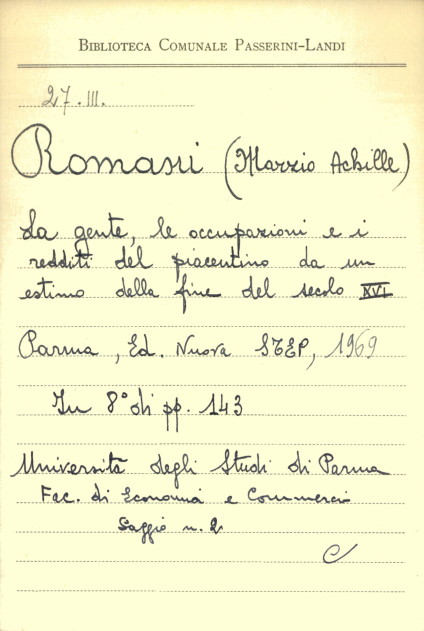 BIBLIOTECA COMUNALE PASSERINI-LANDI
27.III.
Romani (Marzio Achille)
La gente, le occupazioni e i
redditi del piacentino da un
estimo della fine del secolo XVI
Parma, Ed. Nuova STEP, 1969
In 8° di pp. 143
Università degli Studi di Parma
Fac. di Economia e Commercio
Saggio n. 2
C